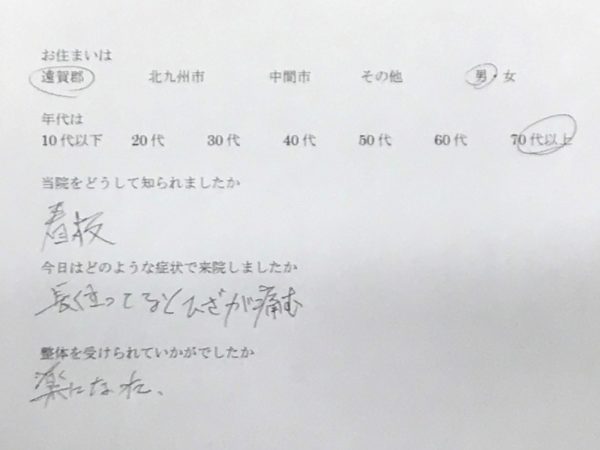 お住まいは
遠賀郡 北九州市 中間市 その他 男・女
年代は
10代以下 20代 30代 40代 50代 60代 70代以上
当院をどうして知られましたか
看板
今日はどのような症状で来院しましたか
長く座ってるとひざが痛む
整体を受けられていかがでしたか
楽になれた、